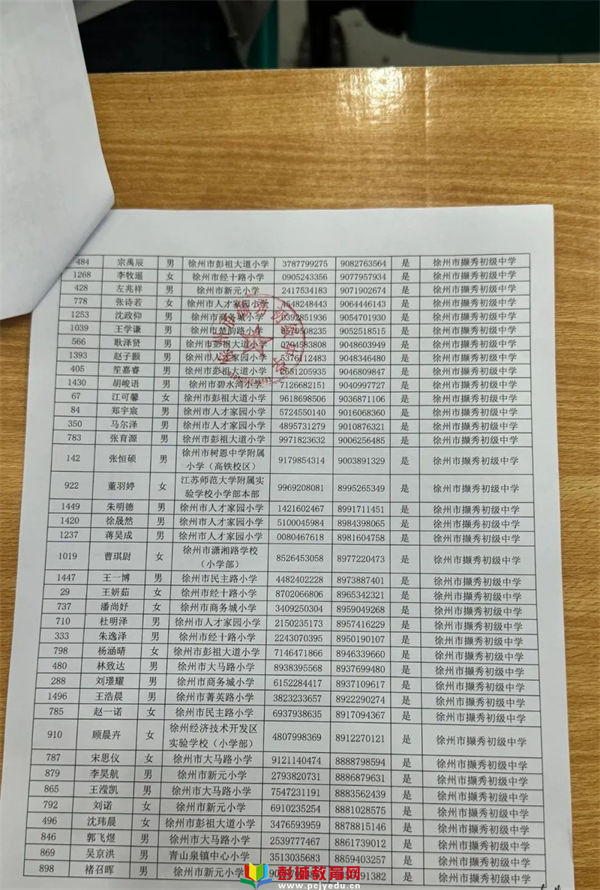 484 宗禹辰 男 徐州市彭祖大道小学 3787799275 9082763564 是 徐州市撷秀初级中学
1268 李牧遥 女 徐州市经十路小学 0905243356 9077957934 是 徐州市撷秀初级中学
428 左兆祥 男 徐州市新元小学 2417534183 9071902674 是 徐州市撷秀初级中学
778 张诗若 女 徐州市人才家园小学 4548248443 9064446143 是 徐州市撷秀初级中学
1253 沈政仰 男 徐州市商务城小学 0392851936 9054701930 是 徐州市撷秀初级中学
1039 王学谦 男 徐州市楚韵路小学 9052518515 是 徐州市撷秀初级中学
566 耿泽贤 男 徐州市彭祖大道小学 0704583808 9048603949 是 徐州市撷秀初级中学
1393 赵子颢 男 徐州市人才家园小学 5376112483 9048346480 是 徐州市撷秀初级中学
405 笙嘉睿 男 徐州市彭祖大道小学 9046809847 是 徐州市撷秀初级中学
1430 胡峻语 男 徐州市碧水湾小学 7126682151 9040997727 是 徐州市撷秀初级中学
67 江可馨 女 徐州市彭祖大道小学 9618698506 9036871106 是 徐州市撷秀初级中学
84 郑宇宸 男 徐州市人才家园小学 5724550140 9016068360 是 徐州市撷秀初级中学
350 马尔泽 男 徐州市人才家园小学 4895731279 9010876321 是 徐州市撷秀初级中学
783 张育源 男 徐州市彭祖大道小学 9971823632 9006256485 是 徐州市撷秀初级中学
142 张恒硕 男 徐州市树恩中学附属
小学（高铁校区） 9179854314 9003891329 是 徐州市撷秀初级中学
922 董羽婷 女 江苏师范大学附属实
验学校小学部本部 9969208081 8995265349 是 徐州市撷秀初级中学
1449 朱明德 男 徐州市人才家园小学 1421602467 8991711451 是 徐州市撷秀初级中学
1420 徐晟然 男 徐州市人才家园小学 5100045984 8984398065 是 徐州市撷秀初级中学
1237 蒋昊成 男 徐州市人才家园小学 0080467618 8981604758 是 徐州市撷秀初级中学
1019 曹琪尉 女 徐州市潇湘路学校
（小学部） 8526453058 8977220473 是 徐州市撷秀初级中学
1447 王一博 男 徐州市民主路小学 4482402228 8973887401 是 徐州市撷秀初级中学
29 王妍茹 女 徐州市经十路小学 8702066806 8965342321 是 徐州市撷秀初级中学
737 潘尚妤 女 徐州市商务城小学 3409250304 8959049268 是 徐州市撷秀初级中学
710 杜明泽 男 徐州市人才家园小学 2150235173 8957416229 是 徐州市撷秀初级中学
333 朱逸泽 男 徐州市经十路小学 2243070395 8950190107 是 徐州市撷秀初级中学
798 杨涵晴 女 徐州市彭祖大道小学 7146471866 8946339660 是 徐州市撷秀初级中学
480 林致达 男 徐州市大马路小学 8938395568 8937699480 是 徐州市撷秀初级中学
288 刘璟耀 男 徐州市商务城小学 6152284417 8937109617 是 徐州市撷秀初级中学
1496 王浩晨 男 徐州市菁英路小学 3823233657 8922290274 是 徐州市撷秀初级中学
785 赵一诺 女 徐州市民主路小学 6937938635 8917094367 是 徐州市撷秀初级中学
910 顾晨卉 女 徐州经济技术开发区
实验学校（小学部） 4807998369 8912270121 是 徐州市撷秀初级中学
787 宋思仪 女 徐州市大马路小学 9121140474 8888798594 是 徐州市撷秀初级中学
879 李昊航 男 徐州市新元小学 2793820731 8886879631 是 徐州市撷秀初级中学
865 王滢凯 男 徐州市大马路小学 7547231191 8883562439 是 徐州市撷秀初级中学
792 刘诺 女 徐州市新元小学 6910235254 8881028575 是 徐州市撷秀初级中学
496 沈玮晨 女 徐州市彭祖大道小学 3476593959 8878815146 是 徐州市撷秀初级中学
846 郭飞煜 男 徐州市大马路小学 2539777467 8861739012 是 徐州市撷秀初级中学
869 吴京洪 男 青山泉镇中心小学 3513035683 8859403257 是 徐州市撷秀初级中学
898 褚召晖 男 徐州市新元小学 是 徐州市撷秀初级中学
彭城教育网
www.pcjyedu.cn